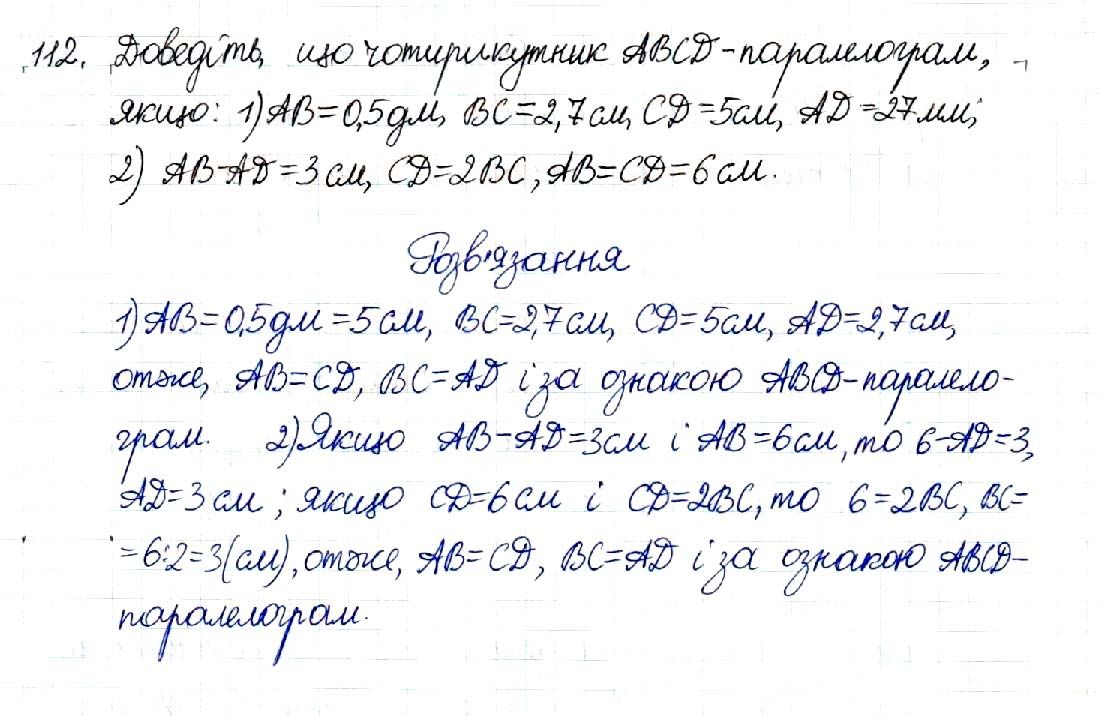 112. Доведіть, що чотирикутник ABCD-паралелограм,
якщо: 1) AB=0,5дм, BC=2,7см, CD=5см, AD=27мм;
2) AB-AD=3см, CD=2BC, AB=CD=6см.
Розв'язання
1) AB=0,5дм=5см, BC=2,7см, CD=5см, AD=2,7см,
отже, AB=CD, BC=AD і за ознакою ABCD-паралело-
грам. 2) Якщо AB-AD=3см і AB=6см, то 6-AD=3,
AD=3см; якщо CD=6см і CD=2BC, то 6=2BC, BC=
=6:2=3(см), отже, AB=CD, BC=AD і за ознакою ABCD-
паралелограм.